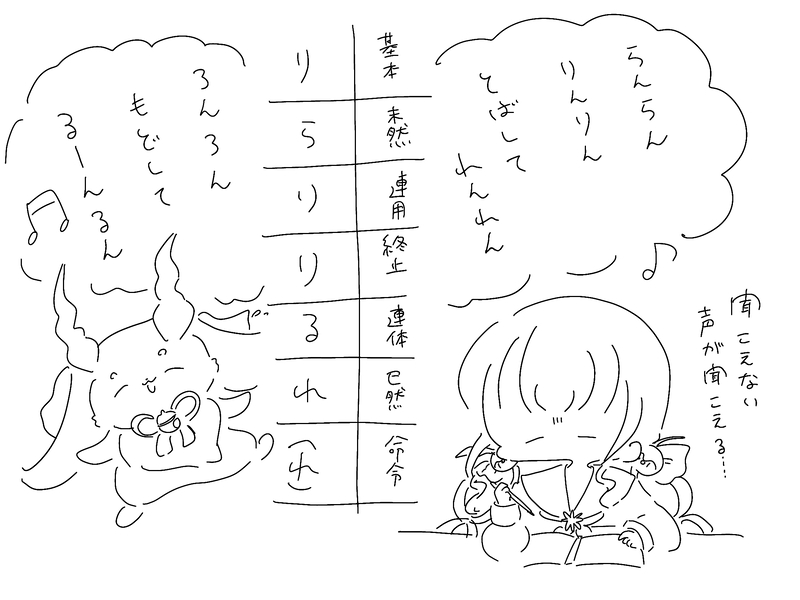 らんらん
りんりん
とばして
れんれん
聞こえない
声が聞こえる…
基本 り
未然 ら
連用 り
終止 り
連体 る
已然 れ
命令 (れ)
ろんろん
もどして
るーんるん